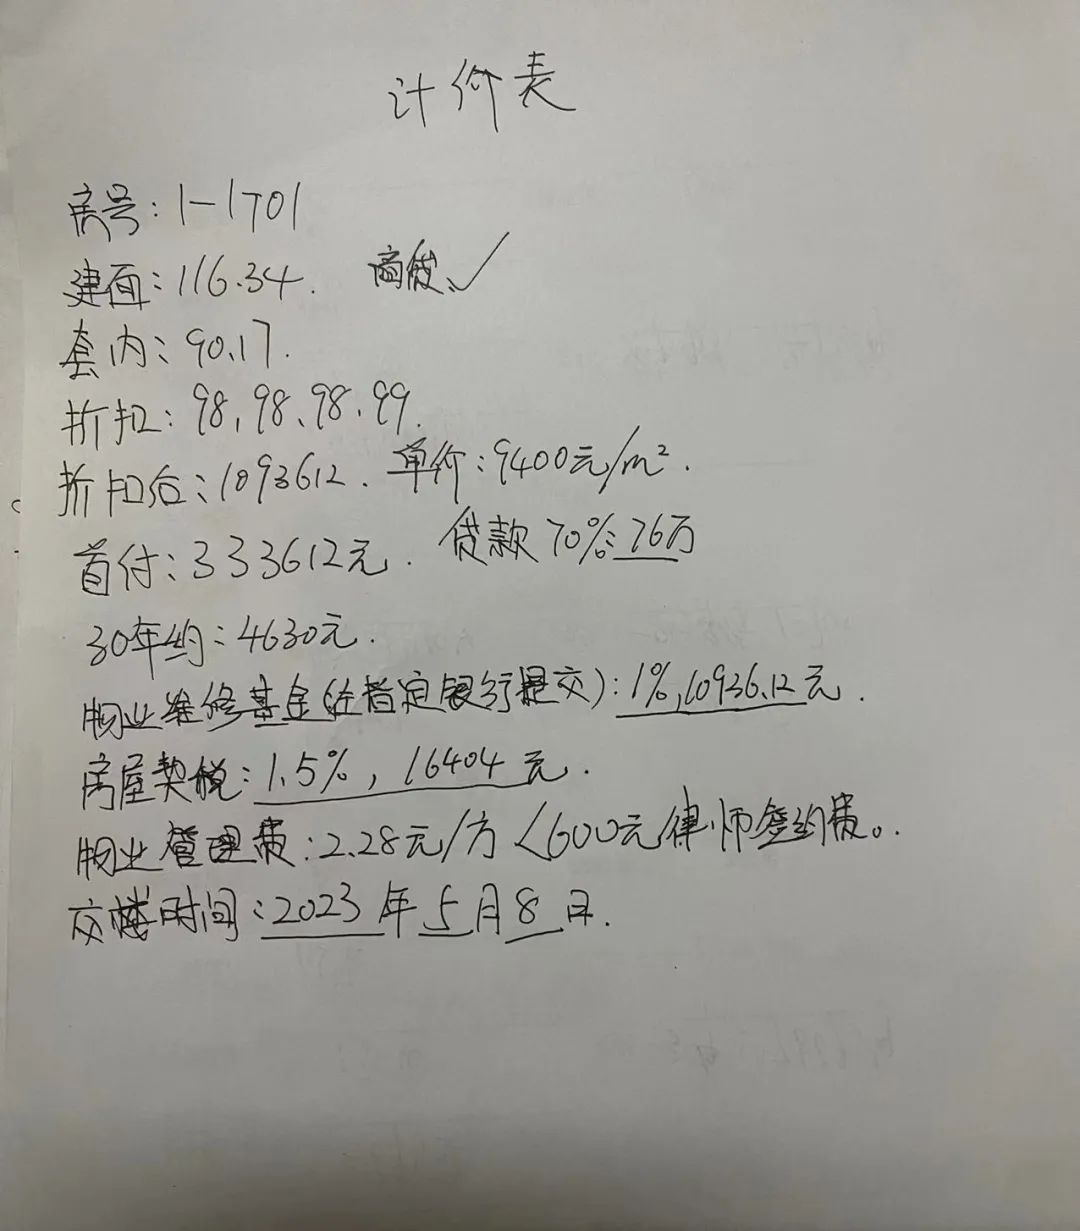 计价表
房号：1-1701
建面：116.34. 商贷、✓
套内：90.17.
折扣：98、98、98、99.
折扣后：1093612. 单价：9400元/m².
首付：333612元. 贷款70%：76万
30年约：4630元.
物业维修基金(往指定银行提交)：1%，10936.12元.
房屋契税：1.5%，16404元.
物业管理费：2.28元/方〈600元律师签约费。.
交楼时间：2023年5月8日.